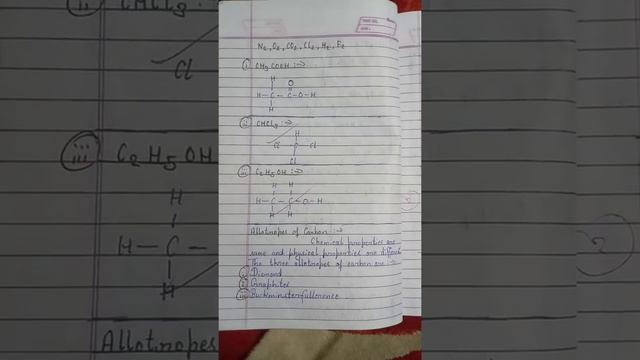 N2, O2, CO2, Cl2, H2, F2
(i) CH3 COOH :->
H O
H - C - C - O - H
H
(ii) CHCl3 :->
H
Cl - C - Cl
Cl
(iii) C2 H5 OH :->
H H
H - C - C - O - H
H H
Allotropes of Carbon :->
Chemical properties are
same and physical properties are different
The three allotropes of carbon are :->
(i) Diamond
(ii) Graphites
(iii) Buckminsterfullerence